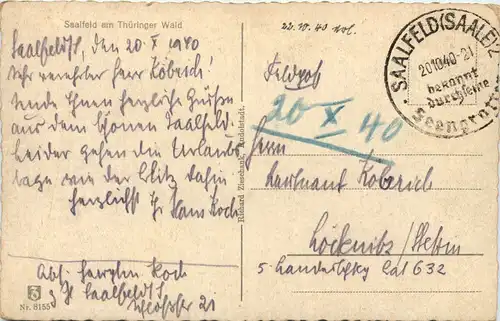 Saalfeld am Thüringer Wald
Saalfeld/S, den 20. X 1940
Sehr verehrter Herr Köberich!
Sende Ihnen herzliche Grüße
aus dem schönen Saalfeld.
Leider gehen die Urlaubs
tage wie der Blitz dahin
Herzlichst Ihr Hans Koch
Abs. Koch
Saalfeld/S
Schloßstr 21
Nr. 8155
Richard Zieschank, Rudolstadt.
22. 10. 40
Feldpost
20 X 40
Herrn
Leutnant Köberich
Löcknitz/Stettin
5. Landesschtz Batl 632
SAALFELD (SAALE) 2
20.10.40-21
bekannt
durch seine
Feengrotten